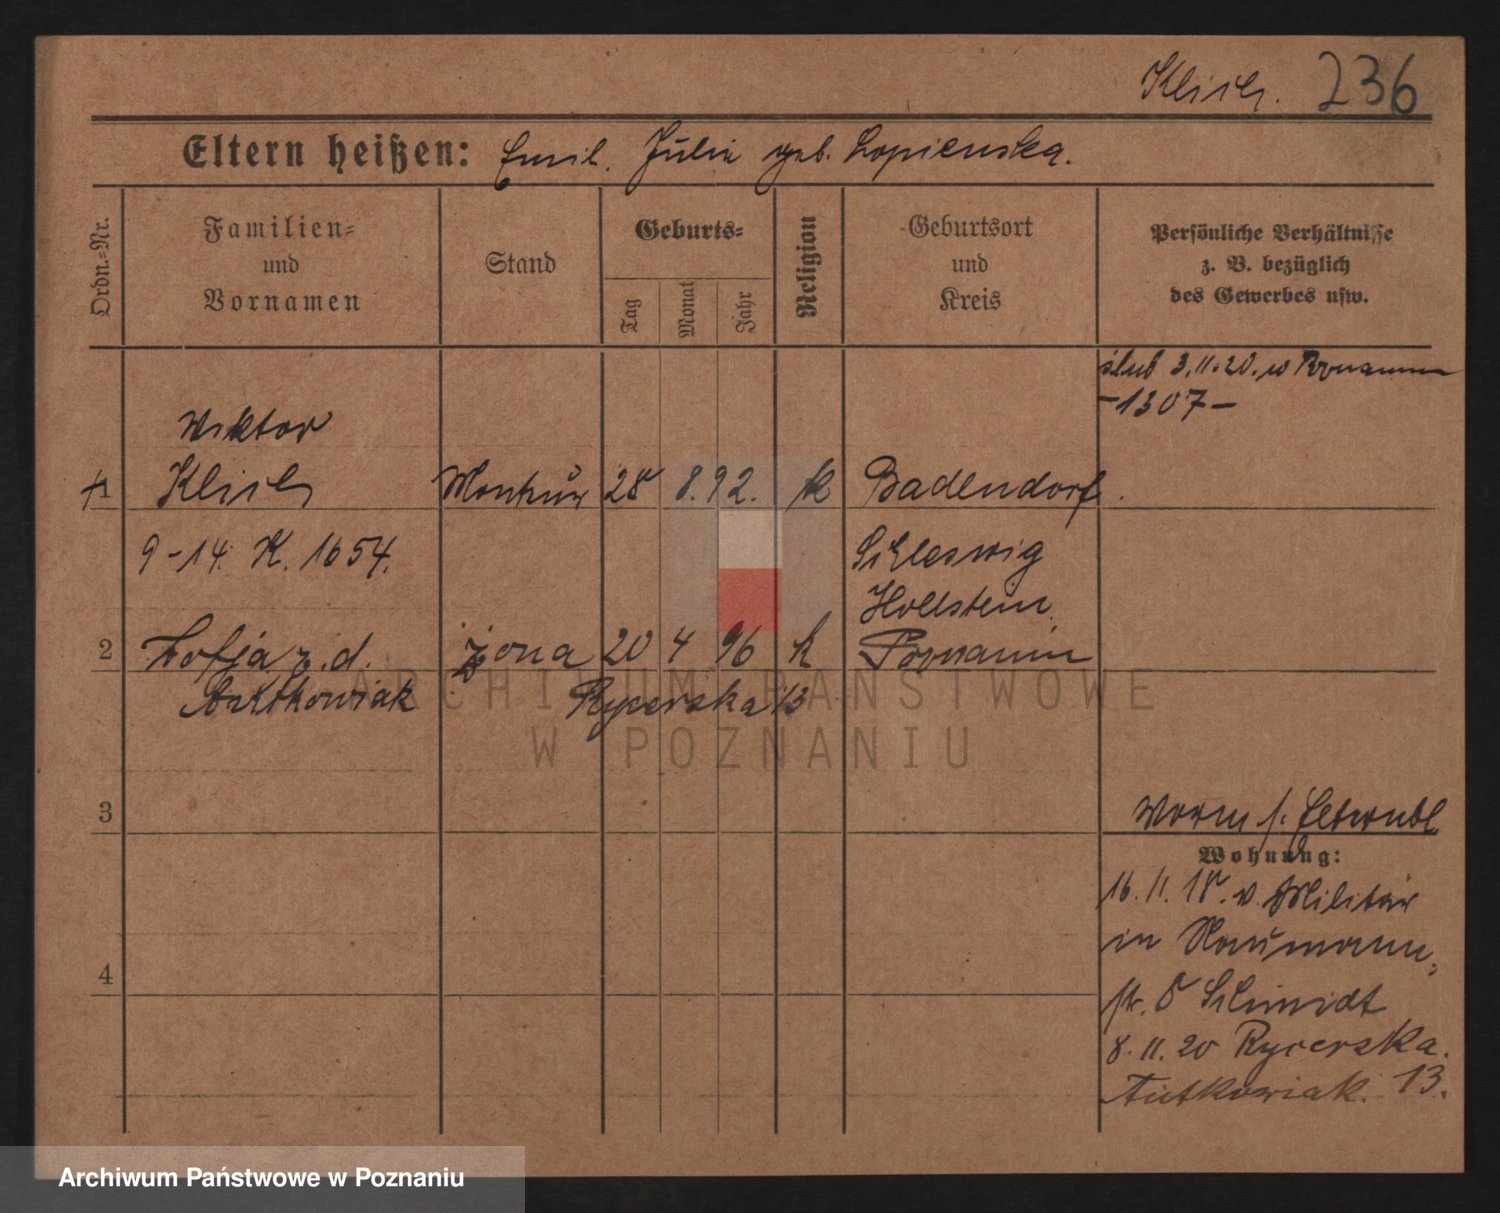 Klisch. 236
Eltern heißen: Emil. Julia geb. Lopienska.
Ordn.-Nr.
Familien-
und
Vornamen
Stand
Geburts-
Tag
Monat
Jahr
Religion
Geburtsort
und
Kreis
Persönliche Verhältnisse
z. B. bezüglich
des Gewerbes usw.
ślub 3.11.20. w Poznaniu
-1307-
Wiktor
1 Klisch Monteur 28 8. 92. k Badendorf.
9-14. K. 1654. Schleswig
Hollstein
2 Zofja z. d. żona 20 4 96 k Poznaniu
Antkowiak Rycerska 13
3
4
Wohnung:
16. 11. 18. v. Militär
in Naumann-
str. 8 Schmidt
8. 11. 20 Rycerska.
Antkowiak. 13.
ARCHIWUM PAŃSTWOWE
W POZNANIU
Archiwum Państwowe w Poznaniu